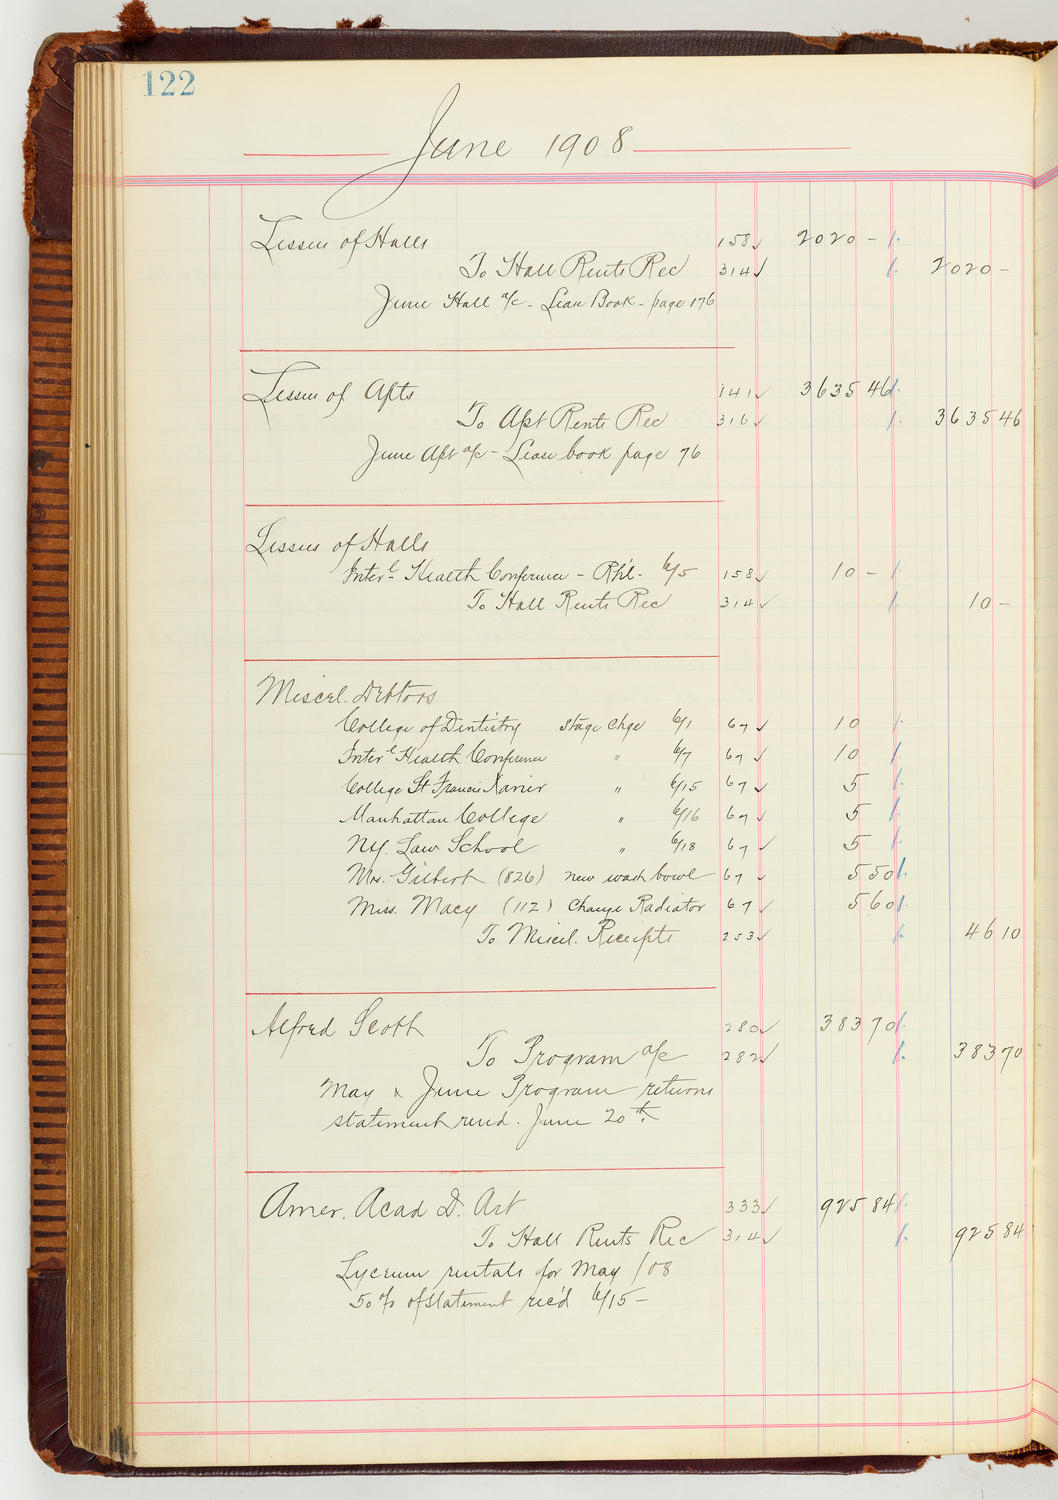 122
June 1908
Lessees of Halls 158 ✓ 2020 -
To Hall Rents Rec 314 ✓ 2020 -
June Hall a/c - Lease Book - page 176
Lessees of Apts 141 ✓ 3635 46
To Apt Rents Rec 316 ✓ 3635 46
June Apt a/c - Lease book page 76
Lessees of Halls
Interl Health Conference - Rh'l - 6/5 158 ✓ 10 -
To Hall Rents Rec 314 ✓ 10 -
Miscel. Debtors
College of Dentistry stage chge 6/1 67 ✓ 10
Interl Health Conference " 6/7 67 ✓ 10
College St Francis Xavier " 6/15 67 ✓ 5
Manhattan College " 6/16 67 ✓ 5
N.Y. Law School " 6/18 67 ✓ 5
Mrs. Gilbert (826) new wash bowl 67 ✓ 5 50
Miss. Macy (112) Change Radiator 67 ✓ 5 60
To Miscel. Receipts 253 ✓ 46 10
Alfred Scott 280 ✓ 383 70
To Program a/c 282 ✓ 383 70
May & June Program returns
statement rend. June 20th.
Amer. Acad D. Art 333 ✓ 925 84
To Hall Rents Rec 314 ✓ 925 84
Lyceum rentals for May /08
50% of statement rec'd 6/15 -